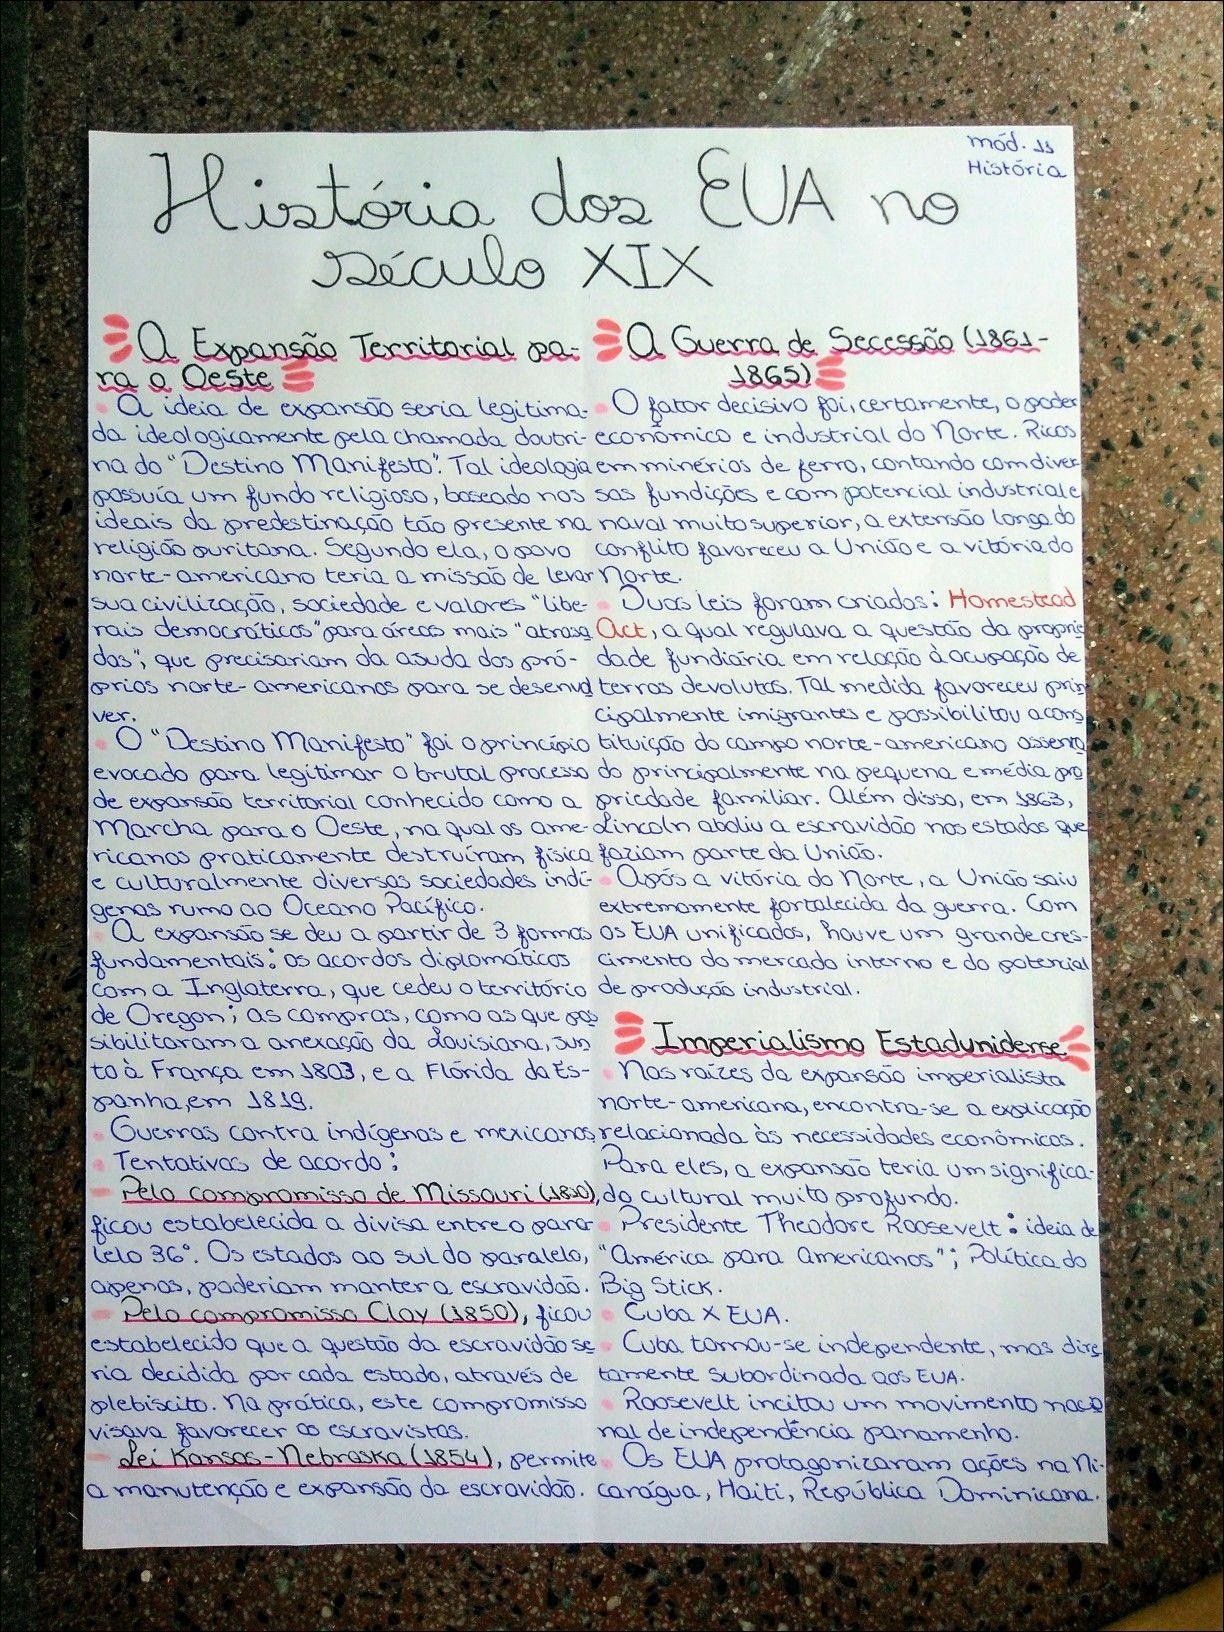 mód. 11
História
História dos EUA no
século XIX
A Expansão Territorial pa-
ra o Oeste
A ideia de expansão seria legitima-
da ideologicamente pela chamada doutri-
na do "Destino Manifesto". Tal ideologia
possuía um fundo religioso, baseado nos
ideais da predestinação tão presente na
religião puritana. Segundo ela, o povo
norte-americano teria a missão de levar
sua civilização, sociedade e valores "libe-
rais democráticos" para áreas mais "atrasa
das", que precisariam da ajuda dos pró-
prios norte-americanos para se desenvol
ver.
O "Destino Manifesto" foi o princípio
evocado para legitimar o brutal processo
de expansão territorial conhecido como a
Marcha para o Oeste, na qual os ame-
ricanos praticamente destruíram física
e culturalmente diversas sociedades indí-
genas rumo ao Oceano Pacífico.
A expansão se deu a partir de 3 formas
fundamentais: os acordos diplomáticos
com a Inglaterra, que cedeu o território
de Oregon; as compras, como as que pos
sibilitaram a anexação da Louisiana, jun
to à França em 1803, e a Flórida da Es-
panha, em 1819.
Guerras contra indígenas e mexicanos
Tentativas de acordo:
Pelo compromisso de Missouri (1820),
ficou estabelecida a divisa entre o para-
lelo 36°. Os estados ao sul do paralelo,
apenas, poderiam manter a escravidão.
Pelo compromisso Clay (1850), ficou
estabelecido que a questão da escravidão se
ria decidida por cada estado, através de
plebiscito. Na prática, este compromisso
visava favorecer os escravistas.
Lei Kansas-Nebraska (1854), permite
a manutenção e expansão da escravidão.
A Guerra de Secessão (1861-
1865)
O fator decisivo foi, certamente, o poder
econômico e industrial do Norte. Ricos
em minérios de ferro, contando com diver
sas fundições e com potencial industrial e
naval muito superior, a extensão longa do
conflito favoreceu a União e a vitória do
Norte.
Duas leis foram criadas: Homestead
Act, a qual regulava a questão da proprie
dade fundiária em relação à ocupação de
terras devolutas. Tal medida favoreceu prin
cipalmente imigrantes e possibilitou a cons
tituição do campo norte-americano assenta
do principalmente na pequena e média pro
priedade familiar. Além disso, em 1863,
Lincoln aboliu a escravidão nos estados que
faziam parte da União.
Após a vitória do Norte, a União saiu
extremamente fortalecida da guerra. Com
os EUA unificados, houve um grande cres-
cimento do mercado interno e do potencial
de produção industrial.
Imperialismo Estadunidense
Nas raízes da expansão imperialista
norte-americana, encontra-se a explicação
relacionada às necessidades econômicas.
Para eles, a expansão teria um significa-
do cultural muito profundo.
Presidente Theodore Roosevelt: ideia de
"América para americanos"; Política do
Big Stick.
Cuba X EUA.
Cuba tornou-se independente, mas dire
tamente subordinada aos EUA.
Roosevelt incitou um movimento nacio
nal de independência panamenho.
Os EUA protagonizaram ações na Ni-
carágua, Haiti, República Dominicana.